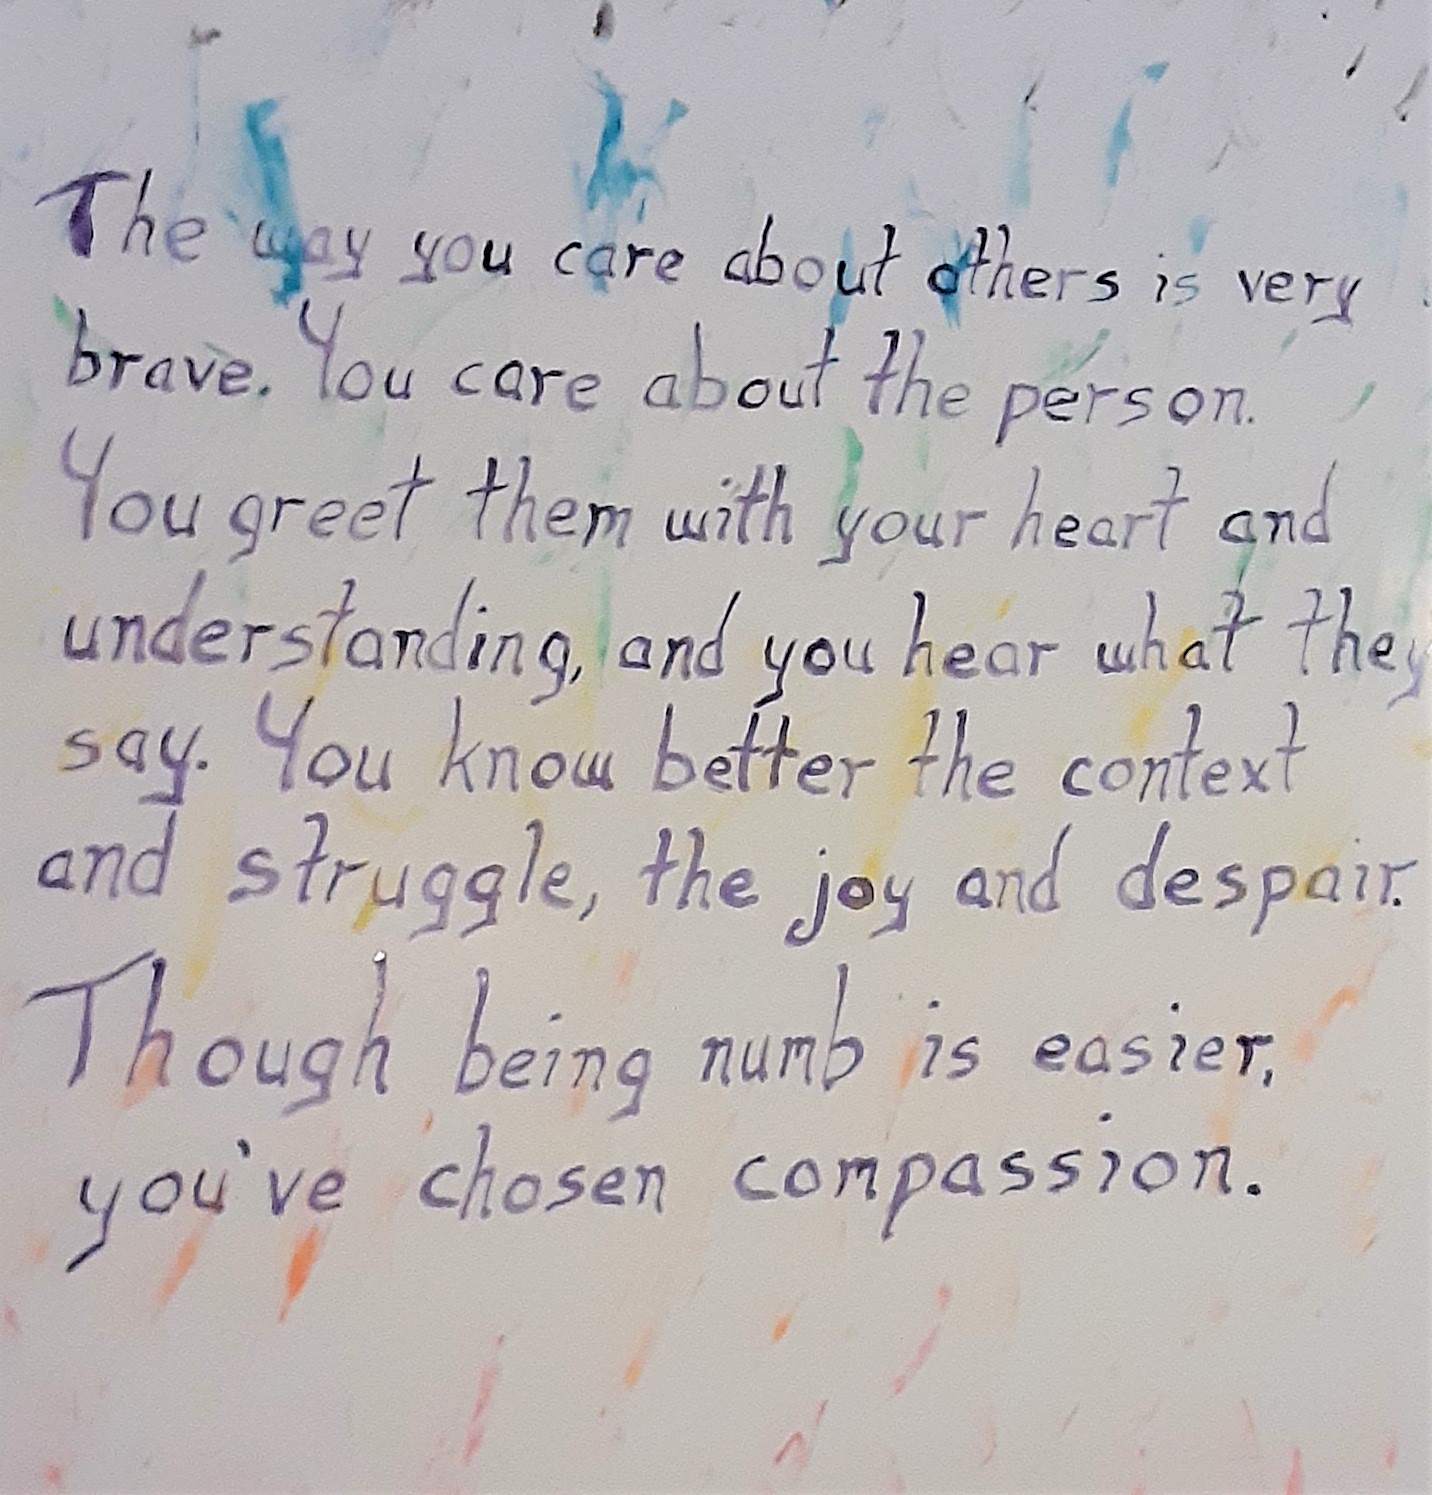 The way you care about others is very
brave. You care about the person.
You greet them with your heart and
understanding, and you hear what they
say. You know better the context
and struggle, the joy and despair.
Though being numb is easier,
you've chosen compassion.